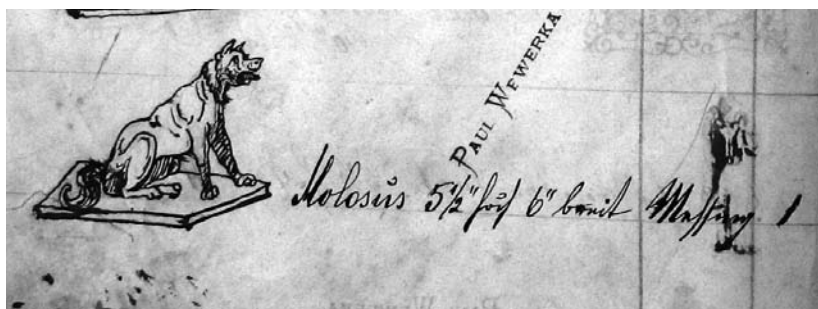 PAUL WEWERKA
Molosus 5½" hoch 6" breit Messing 1